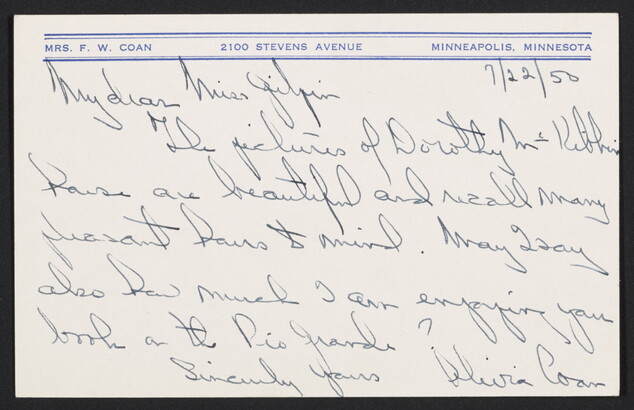 MRS. F. W. COAN 2100 STEVENS AVENUE MINNEAPOLIS, MINNESOTA
7/22/50
My dear Miss Gilpin
The pictures of Dorothy McKibbin
house are beautiful and recall many
pleasant hours to mind. May I say
also how much I am enjoying your
book on the Rio Grande?
Sincerely yours Olivia Coan